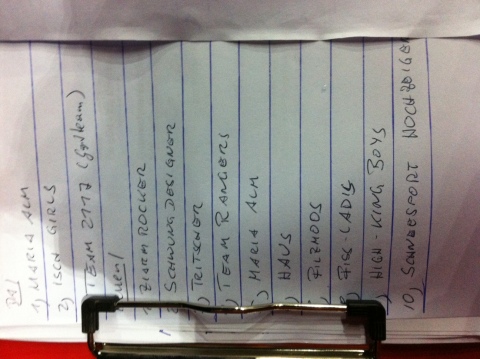 1) MARIA ALM
2) ISCH GIRLS
TEAM 2117 (Gosikam)
1) ZIARM ROCKER
2) SCHWUNG DESIGNER
) TRITSCHER
) TEAM RANGERS
) MARIA ALM
) HAUS
) FILZMOOS
) FISS-LADIS
) HIGH-KING BOYS
10) SCHNEESPORT HOCHZEIGER